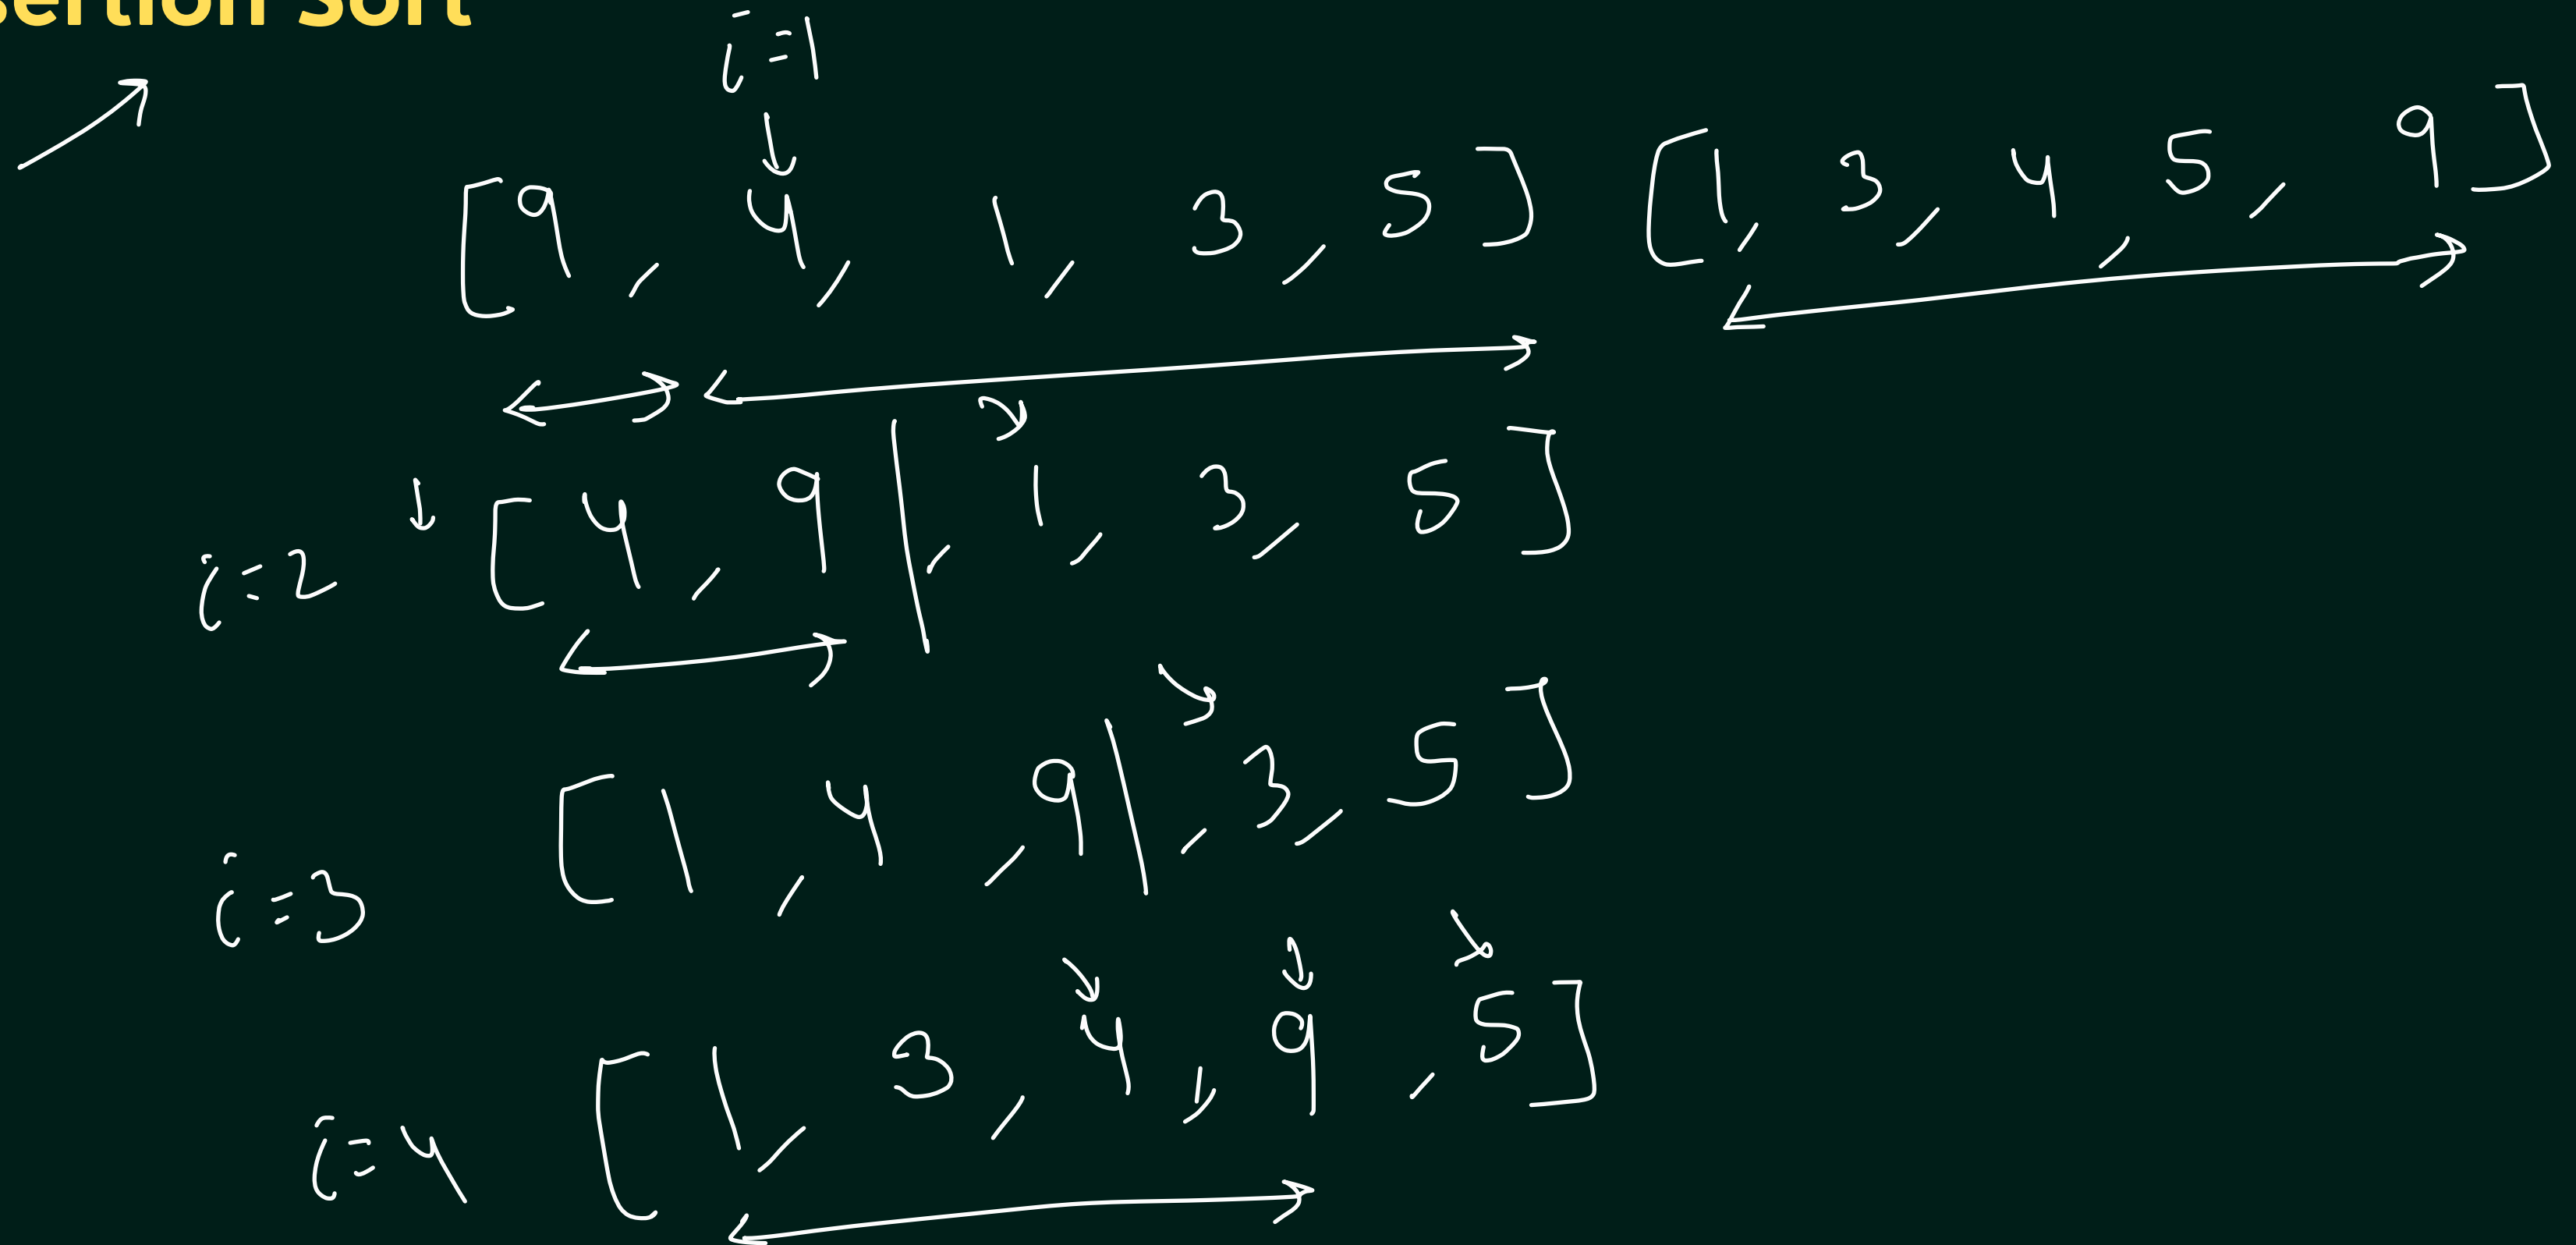 sertion Sort
i=1
[9, 4, 1, 3, 5] [1, 3, 4, 5, 9]
i=2 [4, 9|, 1, 3, 5]
i=3 [1, 4, 9|, 3, 5]
i=4 [1, 3, 4, 9, 5]